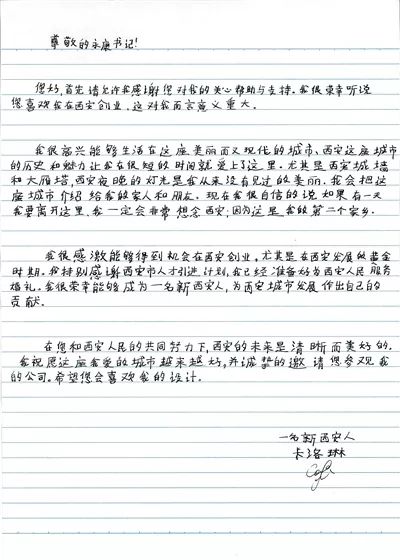 尊敬的永康书记！
您好，首先请允许我感谢您对我的关心帮助与支持。我很荣幸听说
您喜欢我在西安创业，这对我而言意义重大。
我很高兴能够生活在这座美丽而又现代的城市、西安这座城市
的历史和魅力让我在很短的时间就爱上了这里。尤其是西安城墙
和大雁塔，西安夜晚的灯光是我从来没有见过的美丽。我会把这
座城市介绍给我的家人和朋友。现在我很自信的说如果有一天
我要离开这里，我一定会非常想念西安；因为这里是我的第二个家乡。
我很感激能够得到机会在西安创业。尤其是在西安发展的黄金
时期。我特别感谢西安市人才引进计划，我已经准备好为西安人民服务
婚礼。我很荣幸能够成为一名新西安人，为西安城市发展作出自己的
贡献。
在您和西安人民的共同努力下，西安的未来是清晰而美好的。
我祝愿这座我爱的城市越来越好，并诚挚的邀请您参观我
的公司。希望您会喜欢我的设计。
一名新西安人
卡洛琳